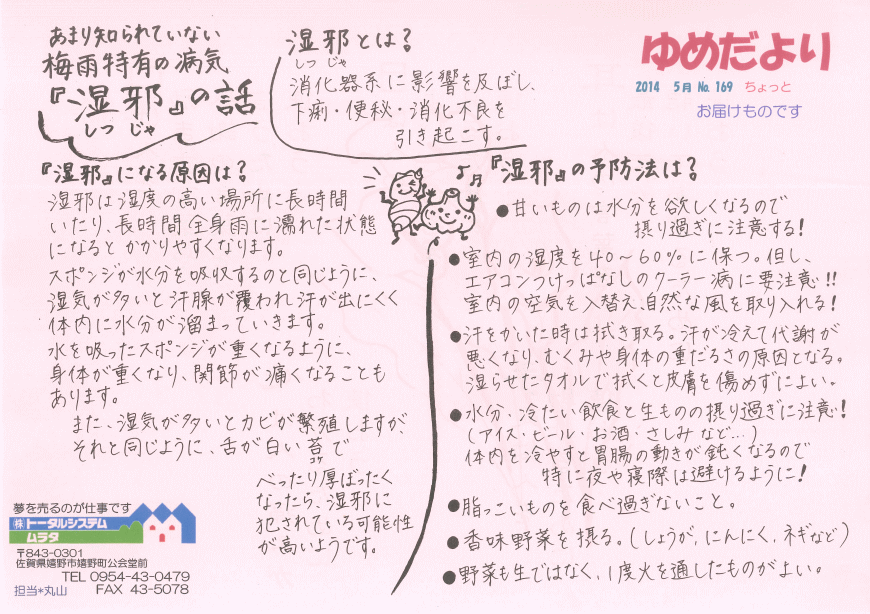 ゆめだより
2014 5月 No.169 ちょっと
お届けものです
あまり知られていない
梅雨特有の病気
『湿邪』の話
しつ じゃ
湿邪とは？
しつ じゃ
消化器系に影響を及ぼし、
下痢・便秘・消化不良を
引き起こす。
『湿邪』になる原因は？
湿邪は湿度の高い場所に長時間
いたり、長時間全身雨に濡れた状態
になると かかりやすくなります。
スポンジが水分を吸収するのと同じように、
湿気が多いと汗腺が覆われ汗が出にくく
体内に水分が溜まっていきます。
水を吸ったスポンジが重くなるように、
身体が重くなり、関節が痛くなることも
あります。
また、湿気が多いとカビが繁殖しますが、
それと同じように、舌が白い苔で
コケ
べったり厚ぼったく
なったら、湿邪に
犯されている可能性
が高いようです。
『湿邪』の予防法は？
●甘いものは水分を欲しくなるので
摂り過ぎに注意する！
●室内の湿度を40～60％に保つ。但し、
エアコンつけっぱなしのクーラー病に要注意!!
室内の空気を入替え、自然な風を取り入れる！
●汗をかいた時は拭き取る。汗が冷えて代謝が
悪くなり、むくみや身体の重だるさの原因となる。
湿らせたタオルで拭くと皮膚を傷めずによい。
●水分、冷たい飲食と生ものの摂り過ぎに注意！
（アイス・ビール・お酒・さしみ など…）
体内を冷やすと胃腸の動きが鈍くなるので
特に夜や寝際は避けるように！
●脂っこいものを食べ過ぎないこと。
●香味野菜を摂る。（しょうが、にんにく、ネギなど）
●野菜も生ではなく、1度火を通したものがよい。
夢を売るのが仕事です
㈱トータルシステム
ムラタ
〒843-0301
佐賀県嬉野市嬉野町公会堂前
TEL 0954-43-0479
担当*丸山 FAX 43-5078